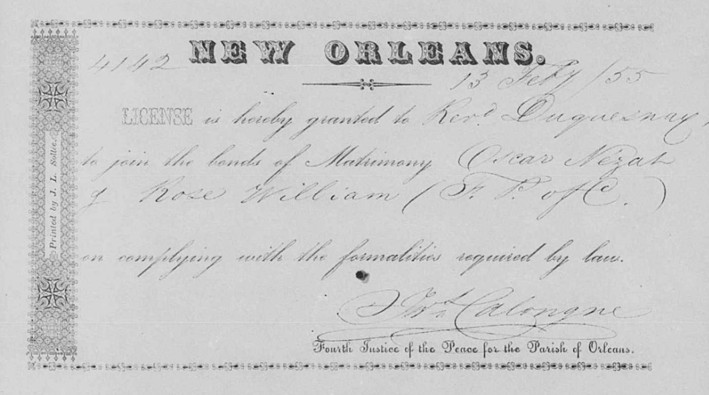 NEW ORLEANS.
4142
13 Feby /55
LICENSE is hereby granted to Rev.d Duquesnay,
to join the bonds of Matrimony Oscar Nézat
& Rose William (F. P. of C.)
on complying with the formalities required by law.
Calongne
Fourth Justice of the Peace for the Parish of Orleans.
Printed by J. L. Sollée